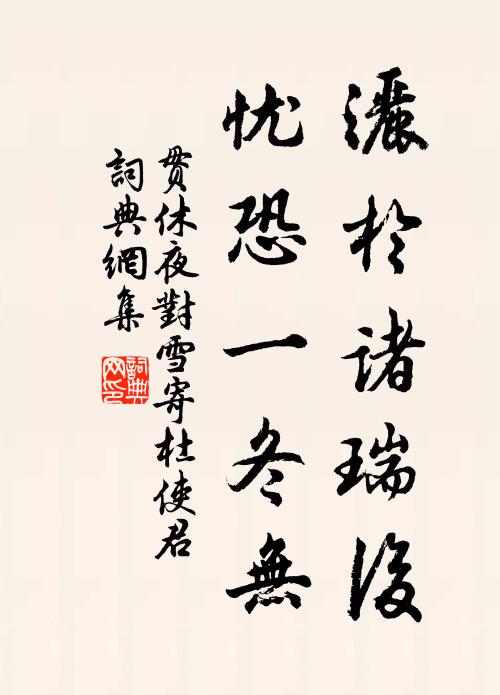 灑於诸瑞後
忧恐一冬無
贯休夜對雪寄杜使君
詞典網集
詞典
网印